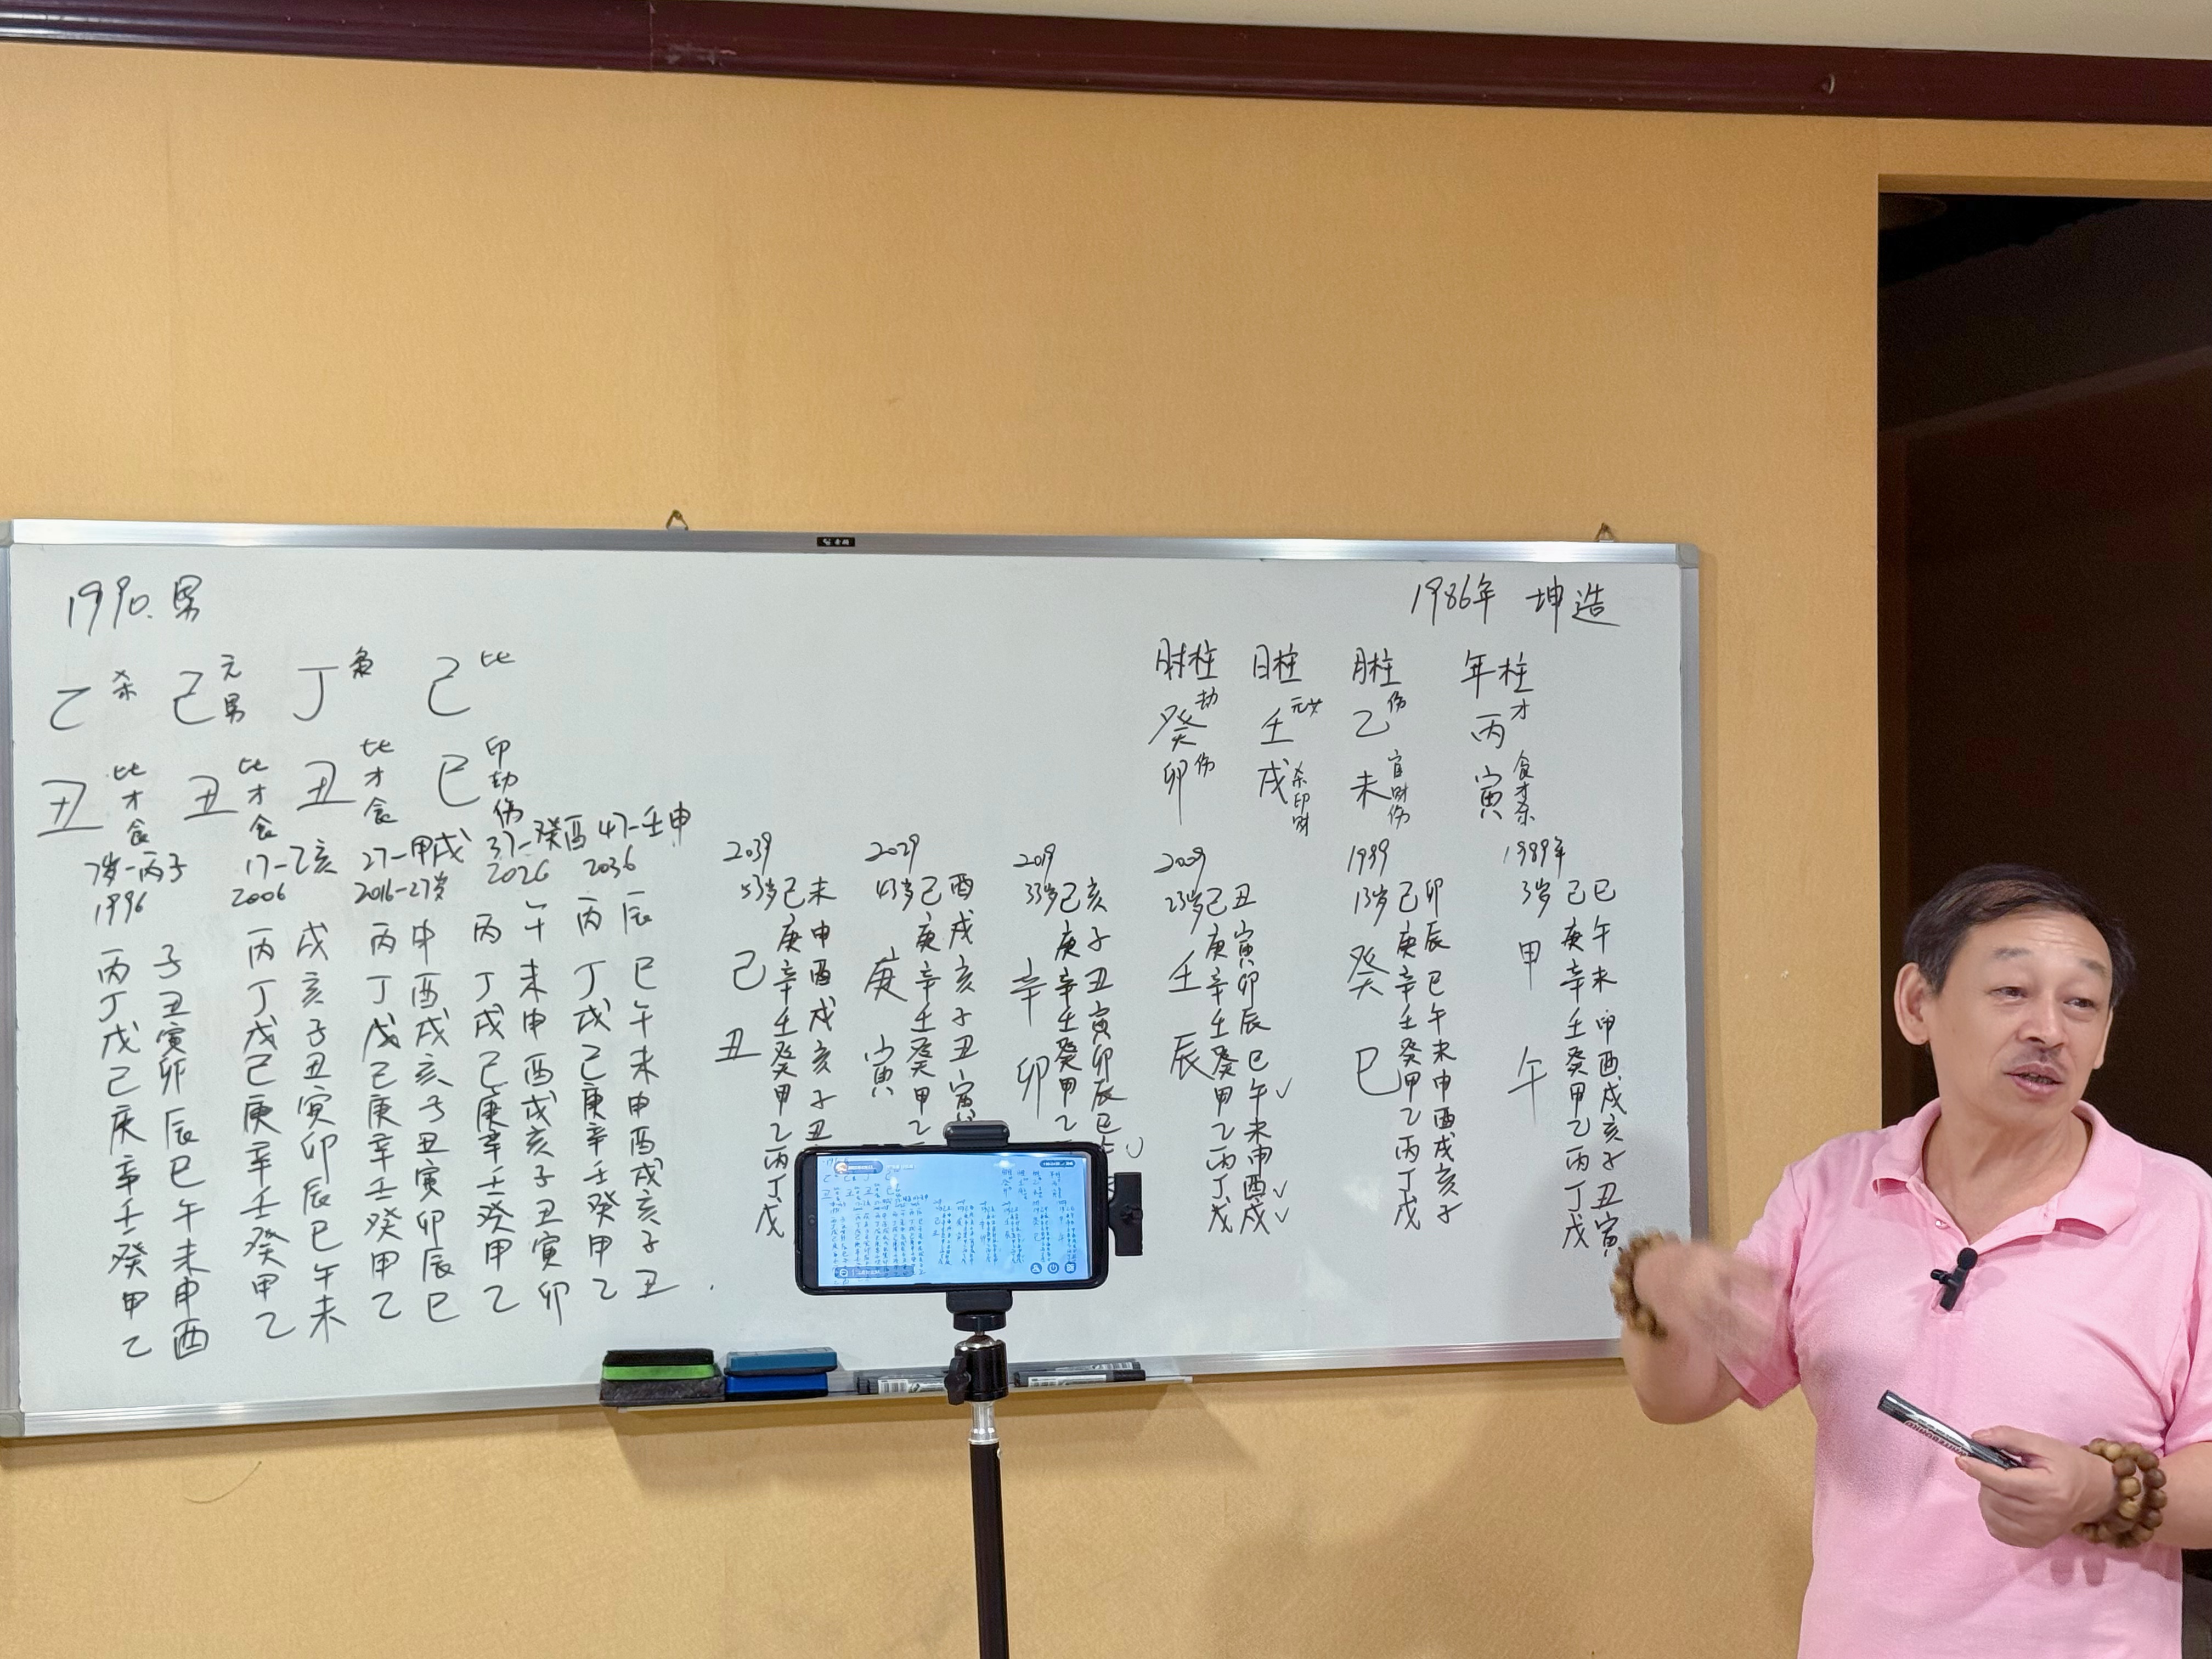 1990.男
乙 杀 己 元男 丁 枭 己 比
丑 比才食 丑 比才食 丑 比才食 巳 印劫伤
7岁-丙子 17-乙亥 27-甲戌 37-癸酉 47-壬申
1996 2006 2016-27岁 2026 2036
丙子 丙戌 丙申 丙午 丙辰
丁丑 丁亥 丁酉 丁未 丁巳
戊寅 戊子 戊戌 戊申 戊午
己卯 己丑 己亥 己酉 己未
庚辰 庚寅 庚子 庚戌 庚申
辛巳 辛卯 辛丑 辛亥 辛酉
壬午 壬辰 壬寅 壬子 壬戌
癸未 癸巳 癸卯 癸丑 癸亥
甲申 甲午 甲辰 甲寅 甲子
乙酉 乙未 乙巳 乙卯 乙丑
1986年 坤造
时柱 日柱 月柱 年柱
癸 劫 壬 元女 乙 伤 丙 才
卯 伤 戌 杀印财 未 官财伤 寅 食才杀
2039 2029 2019 2009 1999 1989年
53岁 43岁 33岁 23岁 13岁 3岁
己丑 庚寅 辛卯 壬辰 癸巳 甲午
己未 己酉 己亥 己丑 己卯 己巳
庚申 庚戌 庚子 庚寅 庚辰 庚午
辛酉 辛亥 辛丑 辛卯 辛巳 辛未
壬戌 壬子 壬寅 壬辰 壬午 壬申
癸亥 癸丑 癸卯 癸巳 癸未 癸酉
甲子 甲寅 甲辰 甲午 甲申 甲戌
乙丑 乙 乙巳 乙未 乙酉 乙亥
丙 丙申 丙戌 丙子
丁 丁酉 丁亥 丁丑
戊 戊戌 戊子 戊寅